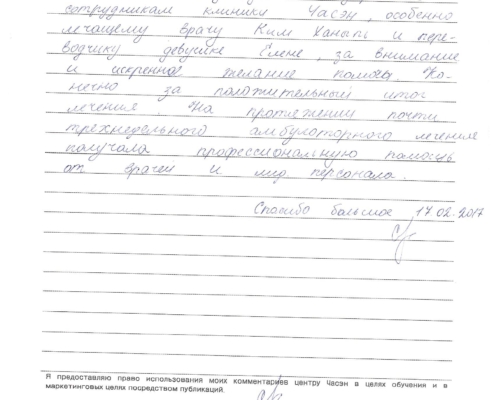 сотрудникам клиники Часэн, особенно
лечащему врачу Ким Ханыль и пере-
водчику девушке Елене, за внимание
и искреннее желание помочь. Ко-
нечно за положительный итог
лечения. На протяжении почти
трёхнедельного амбулаторного лечения
получала профессиональную помощь
от врачей и мед персонала.
Спасибо большое 17.02.2017
Я предоставляю право использования моих комментариев центру Часэн в целях обучения и в
маркетинговых целях посредством публикаций.